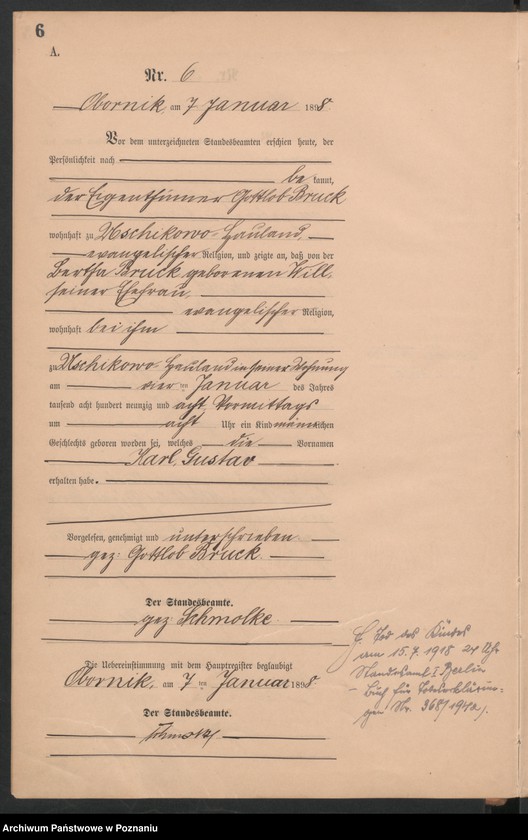 6
A.
Nr. 6
Obornik, am 7 Januar 1898
Vor dem unterzeichneten Standesbeamten erschien heute, der
Persönlichkeit nach
bekannt,
der Eigenthümer Gottlob Bruck
wohnhaft zu Uschikowo-Hauland,
evangelischer Religion, und zeigte an, daß von der
Bertha Bruck geborenen Will,
seiner Ehefrau,
evangelischer Religion,
wohnhaft bei ihm
zu Uschikowo-Hauland in seiner Wohnung
am vier ten Januar des Jahres
tausend acht hundert neunzig und acht Vormittags
um acht Uhr ein Kind männlichen
Geschlechts geboren worden sei, welches die Vornamen
Karl Gustav
erhalten habe.
Vorgelesen, genehmigt und unterschrieben
gez: Gottlob Bruck.
Der Standesbeamte.
gez: Schmolke
Die Uebereinstimmung mit dem Hauptregister beglaubigt
Obornik, am 7 ten Januar 1898
Der Standesbeamte.
Schmolke
Tod des Kindes
am 15.7.1918 24 Uhr
Standesamt I Berlin
- Buch für Todeserklärun-
gen Nr. 368/1942).
Archiwum Państwowe w Poznaniu